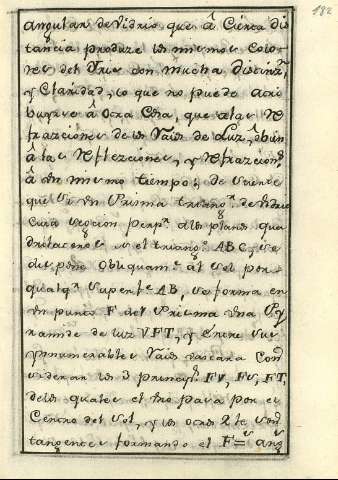 182
angular de Vidrio que â Cierta dis
tancia produze los mismos Colo
res del Yris con mucha distinz.n
y Claridad, lo que no puede atri
buyrse â Otra Cosa, que a las Re
frazciones de los Raios de Luz, ô bien
â las Reflexciones, y Refrazcion.s
â un mismo tiempo; de suerte
que si un Prisma triang.r de vidrio
cuia seccion perp.r a los planos qua
drilateros es el triang.o ABC, se
dispone obliquam.te al Sol por
qualq.r superf.e AB, se forma en
un punto F del Prisma una Py
ramide de luz VFT, y entre sus
ynnumerables Raios bastará Con
siderar los 3 princip.s FV, FS, FT,
delos quales el uno pasa por el
Centro del Sol, y los otros 2 le son
tangentes formando el F= ang.s